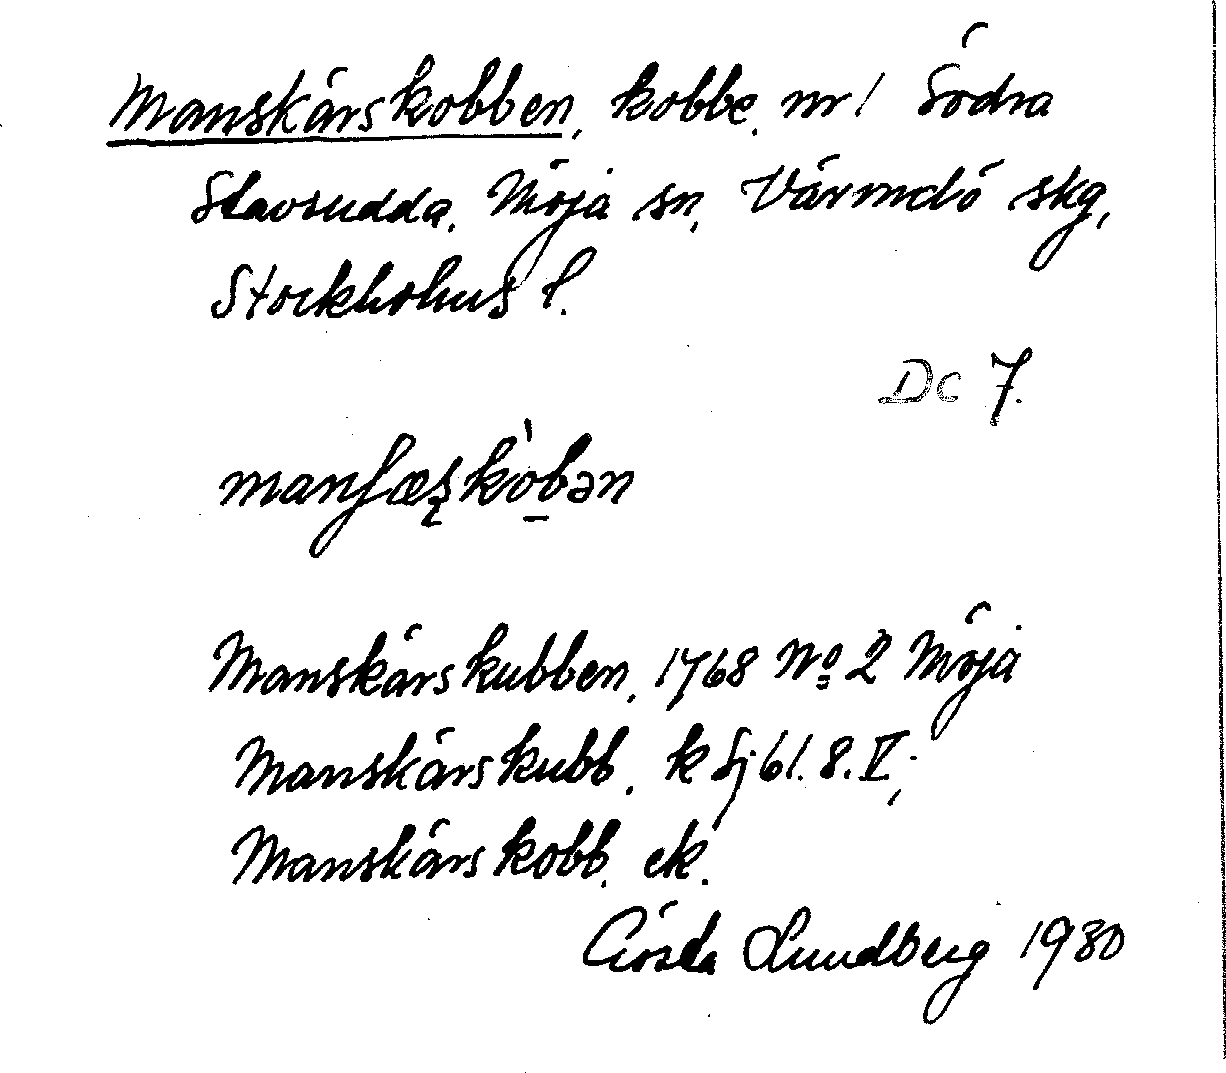 Manskärskobben, kobbe, nr 1 Södra
Stavsudda, Möja sn, Värmdö skg,
Stockholms l.
Dc 7.
manʃæʂkòbən
Manskärskubben, 1768 No 2 Möja
Manskärskubb, k Sj 61. 8. V;
Manskärskobb, ek.
Gösta Lundberg 1930